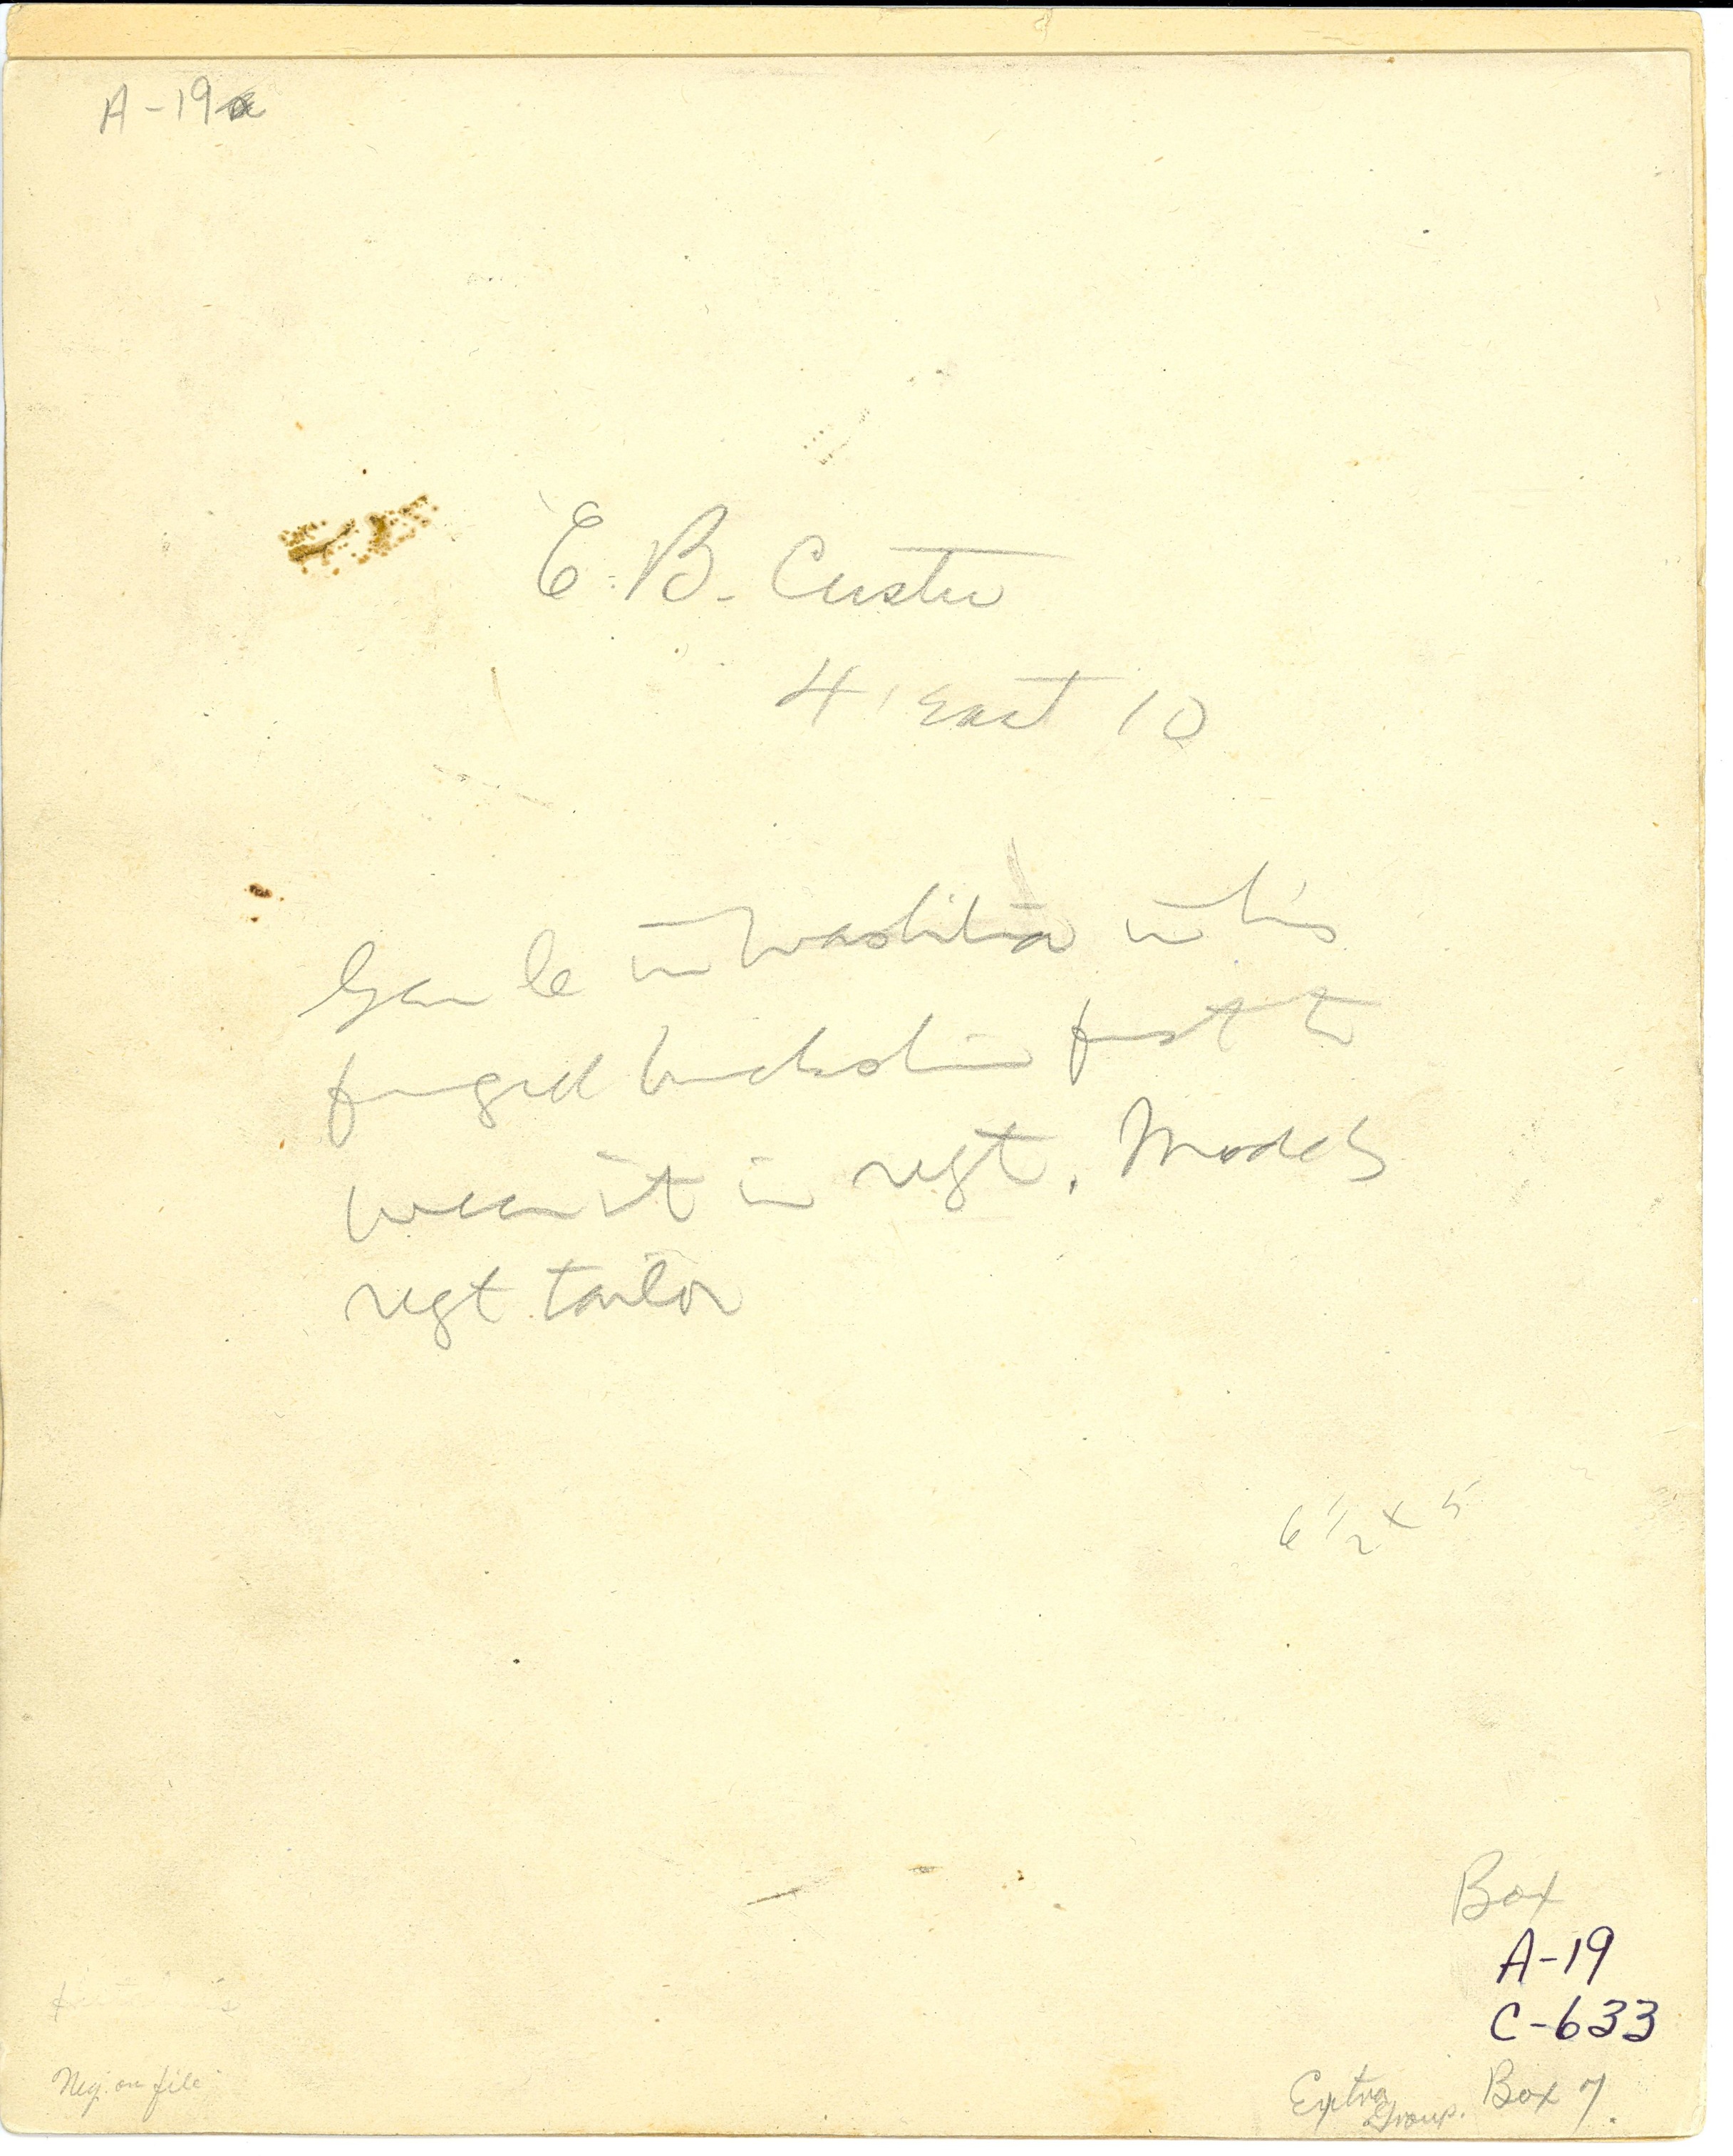 A-19
E. B. Custer
4 East 10
Gen C in Washita in his
fringed buckskin first to
wear it in regt. Made by
regt tailor
6 1/2 x 5
Box
A-19
C-633
Neg. on file
Extra Group. Box 7.